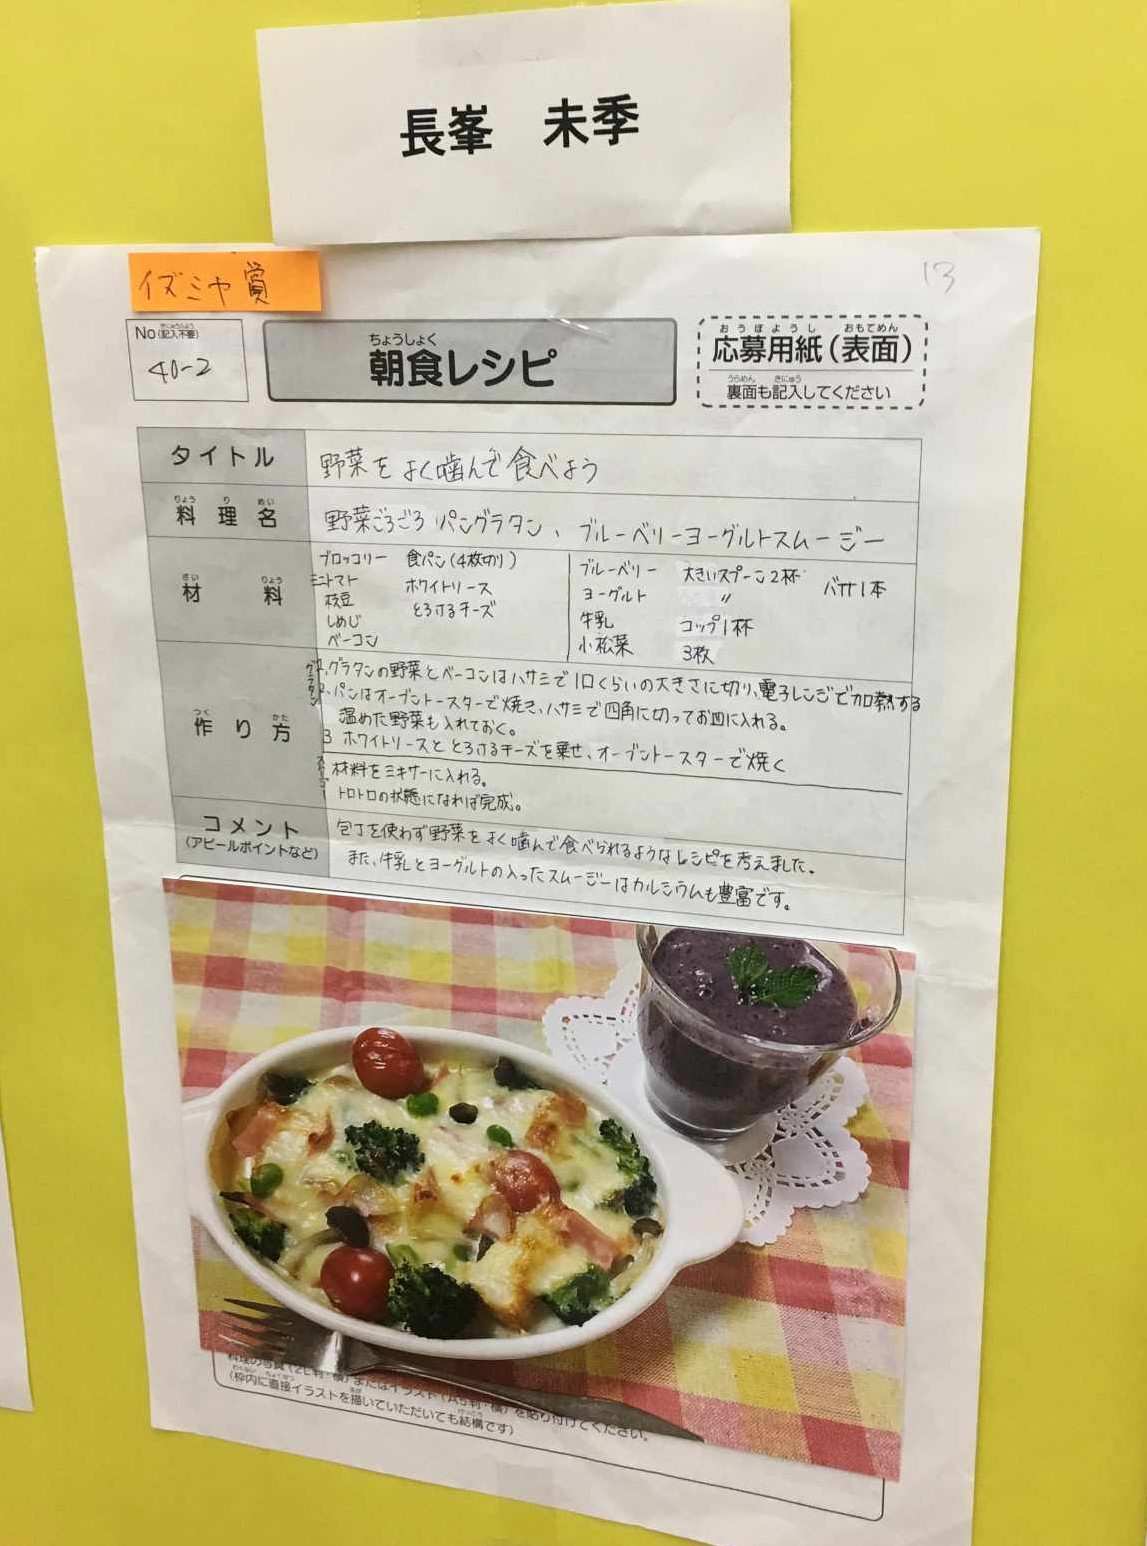 長峯 未季
イズミヤ賞
13
No(記入不要)
40-2
ちょうしょく
朝食レシピ
おうぼようし おもてめん
応募用紙(表面)
うらめん きにゅう
裏面も記入してください
タイトル
野菜をよく噛んで食べよう
りょう り めい
料理名
野菜ごろごろパングラタン、ブルーベリーヨーグルトスムージー
ざい りょう
材料
ブロッコリー 食パン(4枚切り)
ミニトマト ホワイトソース
枝豆 とろけるチーズ
しめじ
ベーコン
ブルーベリー 大きいスプーン2杯 バナナ1本
ヨーグルト 〃
牛乳 コップ1杯
小松菜 3枚
つく かた
作り方
グラタン
1.グラタンの野菜とベーコンはハサミで1口くらいの大きさに切り、電子レンジで加熱する
2.パンはオーブントースターで焼き、ハサミで四角に切ってお皿に入れる。
温めた野菜も入れておく。
3 ホワイトソースととろけるチーズを乗せ、オーブントースターで焼く
スムージー
材料をミキサーに入れる。
トロトロの状態になれば完成。
コメント
(アピールポイントなど)
包丁を使わず野菜をよく噛んで食べられるようなレシピを考えました。
また、牛乳とヨーグルトの入ったスムージーはカルシウムも豊富です。
料理の写真(2L判・横)またはイラスト(A5判・横)を貼り付けてください。
(枠内に直接イラストを描いていただいても結構です)